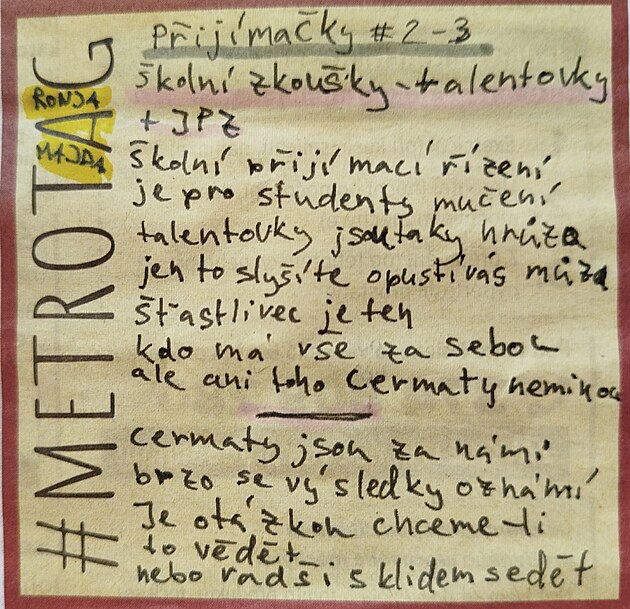 #METROTAG
RONJA
MAJDA
Přijímačky #2-3
školní zkoušky - talentovky
+ JPZ
školní přijímací řízení
je pro studenty mučení
talentovky jsou taky hrůza
jen to slyšíte opustí vás můza
šťastlivec je ten
kdo má vše za sebou
ale ani toho Cermaty neminou
cermaty jsou za námi
brzo se výsledky oznámí
Je otázkou chceme-li
to vědět
nebo radši s klidem sedět